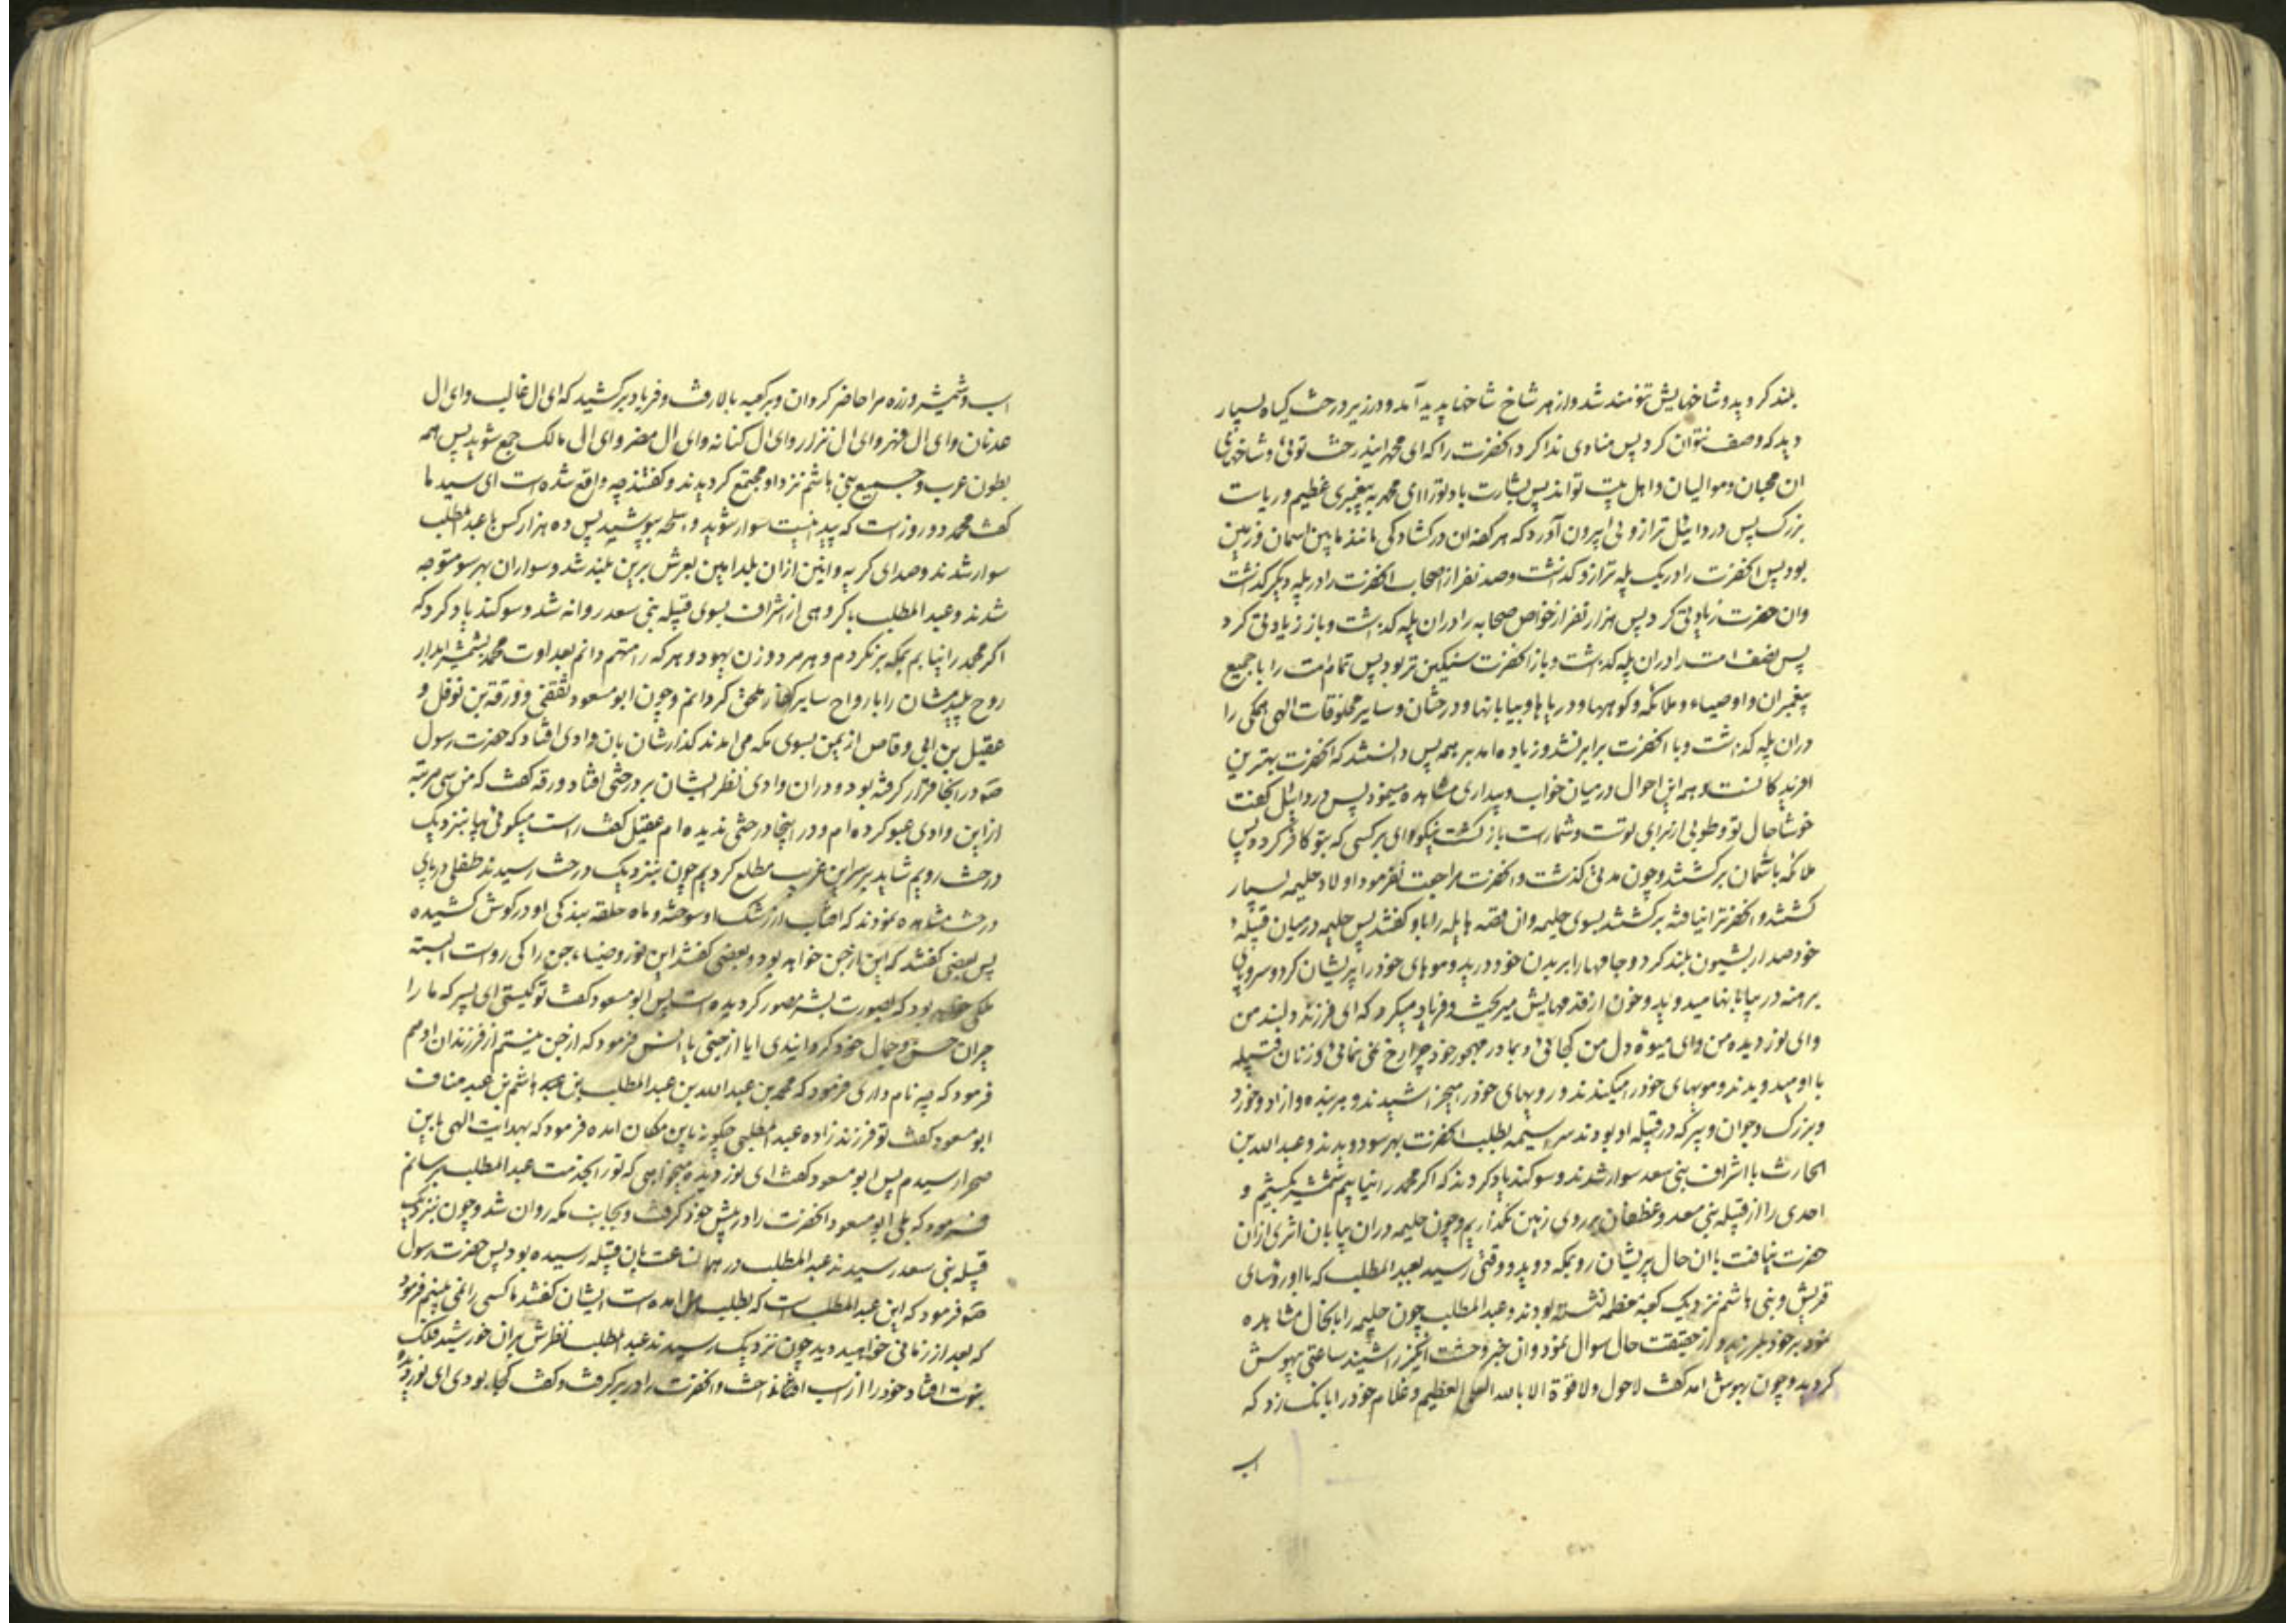 بلند کردید و شاخهایش تنومند شد و از هر شاخ شاخها پدید آمد و در زیر درخت کیاه بسیار
دید که وصف نتوان کرد پس منادی ندا کرد انحضرت را که ای محمد اینذرخت توئی و شاخهای
ان محبان و موالیان و اهل بیت تواند پس بشارت باد تورا ای محمد به پیغمبری عظیم و ریاست
بزرک پس دردائیل ترازوئی بیرون آورد که هر کفه ان در کشادکی مانند مابین اسمان و زمین
بود پس انحضرت را در یک پله ترازو کذاشت و صد نفر از اصحاب انحضرت را در پله دیکر کذاشت
وان حضرت زیادتی کرد پس هزار نفر از خواص صحابه را دران پله کذاشت و باز زیادتی کرد
پس نصف امت را دران پله کذاشت و باز انحضرت سنکین تر بود پس تمام امت را با جمیع
پیغمبران و اوصیاء و ملائکه و کوهها و دریاها و بیابانها و درختان و سایر مخلوقات الهی همکی را
دران پله کذاشت و با انحضرت برابر نشد و زیاده امد بر همه پس دانستند که انحضرت بهترین
افریدکانست و همه این احوال در میان خواب و بیداری مشاهده مینمود پس دردائیل کفت
خوشا حال تو و طوبی از برای توست و شماراست بازکشت نیکو وای بر کسی که بتو کافر کردد پس
ملائکه باسمان برکشتند و چون مدتی کذشت و انحضرت مراجعت نفرمود اولاد حلیمه بسیار
کشتند و انحضرترا نیافته برکشتند بسوی حلیمه وان قصه هایله را باو کفتند پس حلیمه در میان قبیله
خود صدا را بشیون بلند کرد و جامهها را بر بدن خود درید و موهای خود را پریشان کرد و سر و پای
برهنه در بیابانها میدوید و خون از قدمهایش میریخت و فریاد میکرد که ای فرزند دلبند من
وای نور دیده من وای میوه دل من کجائی و بمادر مهجور خود چرا رخ نمی نمائی و زنان قبیله
با او میدویدند و مویهای خود را میکندند و رویهای خود را میخراشیدند و هر بنده و ازاد و خورد
و بزرک و جوان و پیر که در قبیله او بودند سراسیمه بطلب انحضرت بهر سو دویدند و عبدالله بن
الحارث با اشراف بنی سعد سوار شدند و سوکند یاد کردند که اکر محمد را نیابیم شمشیر بکشیم و
احدی را از قبیله بنی سعد و غطفان بر روی زمین نکذاریم و چون حلیمه دران بیابان اثری ازان
حضرت نیافت با ان حال پریشان رو بمکه دوید و وقتی رسید بعبد المطلب که با او رؤسای
قریش و بنی هاشم نزدیک کعبه معظمه نشسته بودند و عبد المطلب چون حلیمه را بانحال مشاهده
نمود بر خود بلرزید و از حقیقت حال سوال نمود و ان خبر وحشت انکیز را شنید ساعتی بیهوش
کردید و چون بهوش امد کفت لا حول ولا قوة الا بالله العلی العظیم و غلام خود را بانک زد که
اب
اب و شمشیر و زره مرا حاضر کردان و بر کعبه بالا رفت و فریاد برکشید که ای ال غالب وای ال
عدنان وای ال فهر وای ال نزار وای ال کنانه وای ال مضر وای ال مالک جمع شوید پس همه
بطون عرب و جمیع بنی هاشم نزد او مجتمع کردیدند و کفتند چه واقع شده است ای سید ما
کفت محمد دو روز است که پیدا نیست سوار شوید و اسلحه بپوشید پس ده هزار کس با عبد المطلب
سوار شدند و صدای کریه و انین ازان بلد امین بعرش برین بلند شد و سواران بهر سو متوجه
شدند و عبد المطلب با کروهی از اشراف بسوی قبیله بنی سعد روانه شد و سوکند یاد کرد که
اکر محمد را نیابم بمکه برنکردم و هر مرد و زن یهود و هر که را متهم دانم بعداوت محمد بشمشیر ابدار
روح پلیدشان را با ارواح سایر کفار ملحق کردانم و چون ابو مسعود ثقفی و ورقة بن نوفل و
عقیل بن ابی وقاص از یمن بسوی مکه می امدند کذارشان بان وادی افتاد که حضرت رسول
صه در انجا قرار کرفته بود و دران وادی نظر ایشان بر درختی افتاد ورقه کفت که من سی مرتبه
از این وادی عبور کرده ام و در اینجا درختی ندیده ام عقیل کفت راست میکوئی بیا بنزدیک
درخت رویم شاید بر سر این غریب مطلع کردیم چون بنزدیک درخت رسیدند طفلی در پای
درخت مشاهده نمودند که افتاب از رشک او سوخته و ماه حلقه بندکی او در کوش کشیده
پس بعضی کفتند که این از جن خواهد بود و بعضی کفتند این نور و ضیاء جن را کی روا است البته
ملکی خواهد بود که بصورت بشر مصور کردیده است پس ابو مسعود کفت تو کیستی ای پسر که ما را
حیران حسن و جمال خود کردانیدی ایا از جنی یا انس فرمود که از جن نیستم از فرزندان ادمم
فرمود که چه نام داری فرمود که محمد بن عبد الله بن عبد المطلب بن هاشم بن عبد مناف
ابو مسعود کفت تو فرزند زاده عبد المطلبی چکونه باین مکان امده فرمود که بهدایت الهی باین
صحرا رسیدم پس ابو مسعود کفت ای نور دیده میخواهی که تورا بخدمت عبد المطلب برسانم
فرمود که بلی ابو مسعود انحضرت را در پیش خود کرفت و بجانب مکه روان شد و چون بنزدیک
قبیله بنی سعد رسیدند عبد المطلب در همانساعت بان قبیله رسیده بود پس حضرت رسول
صه فرمود که این عبد المطلب است که بطلب من امده است ایشان کفتند ما کسی را نمی بینیم فرمود
که بعد از زمانی خواهید دید چون نزدیک رسیدند عبد المطلب نظرش بران خورشید فلک
نبوت افتاد خود را از اسب انداخت و انحضرت را در بر کرفت و کفت کجا بودی ای نور دیده